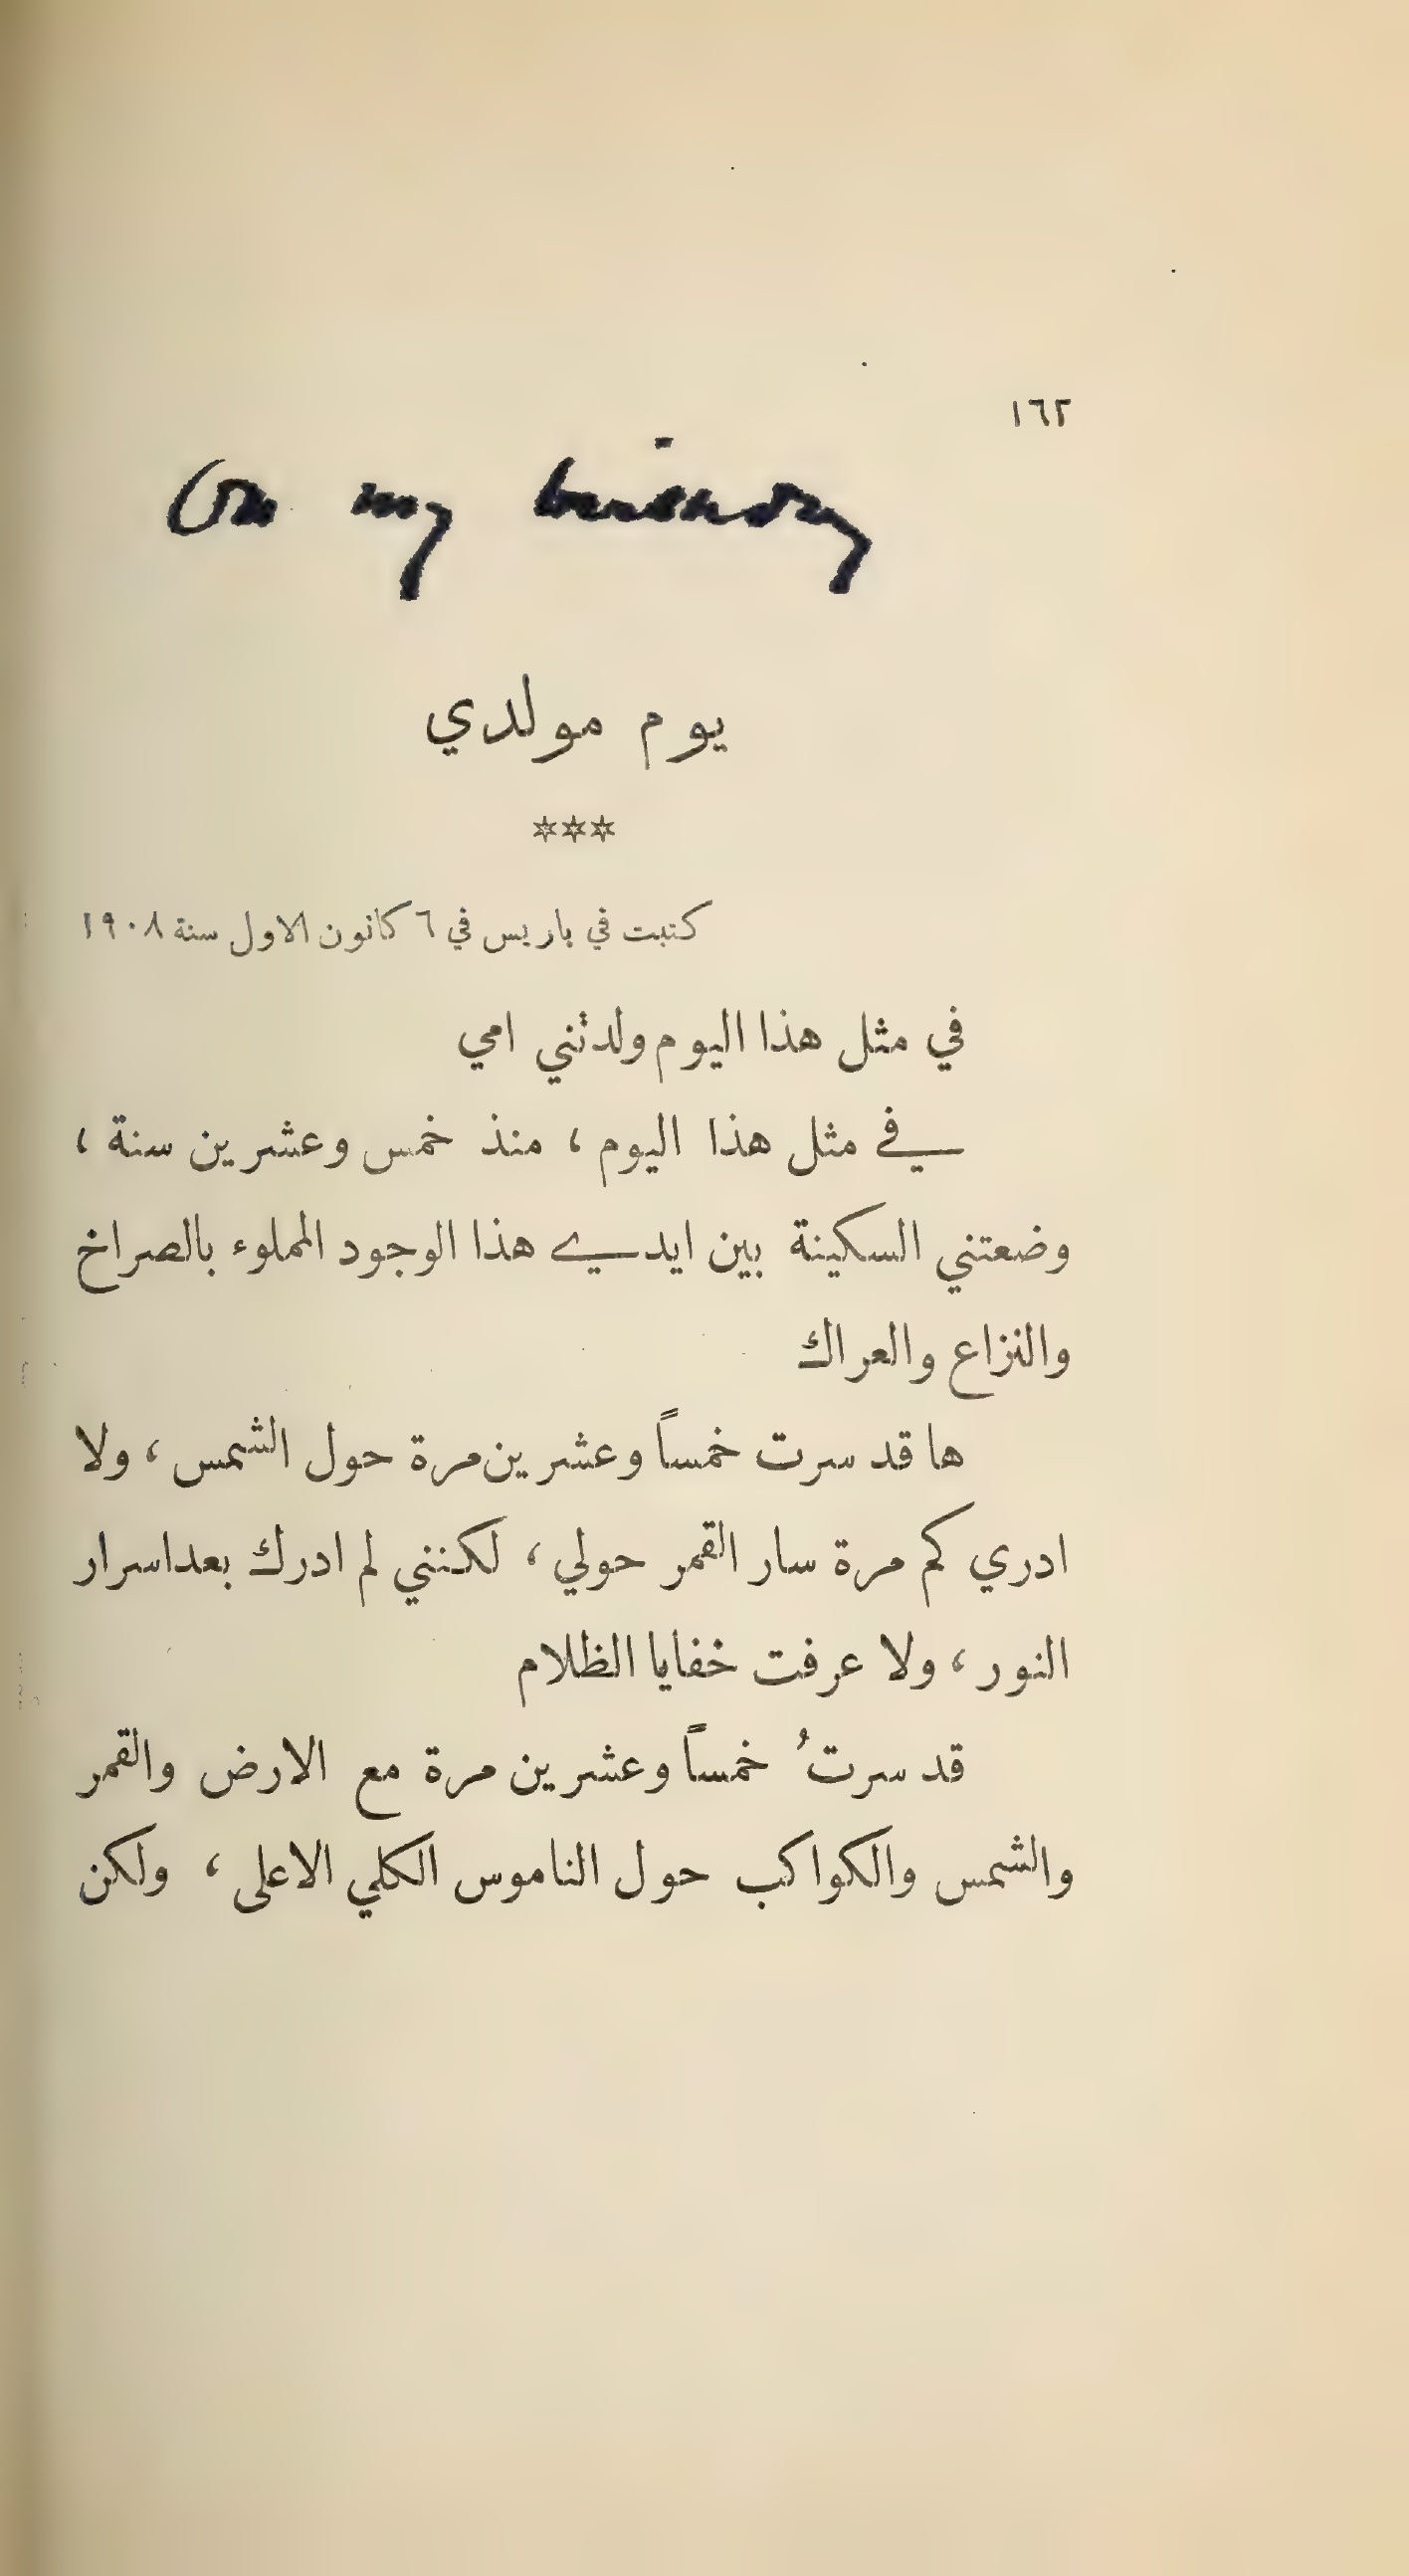 ١٦٢
On my birthday
يوم مولدي
***
كتبت في باريس في ٦ كانون الاول سنة ١٩٠٨
في مثل هذا اليوم ولدتني امي
في مثل هذا اليوم ، منذ خمس وعشرين سنة ،
وضعتني السكينة بين ايدي هذا الوجود المملوء بالصراخ
والنزاع والعراك
ها قد سرت خمساً وعشرين مرة حول الشمس ، ولا
ادري كم مرة سار القمر حولي ، لكنني لم ادرك بعد اسرار
النور ، ولا عرفت خفايا الظلام
قد سرتُ خمساً وعشرين مرة مع الارض والقمر
والشمس والكواكب حول الناموس الكلي الاعلى ، ولكن